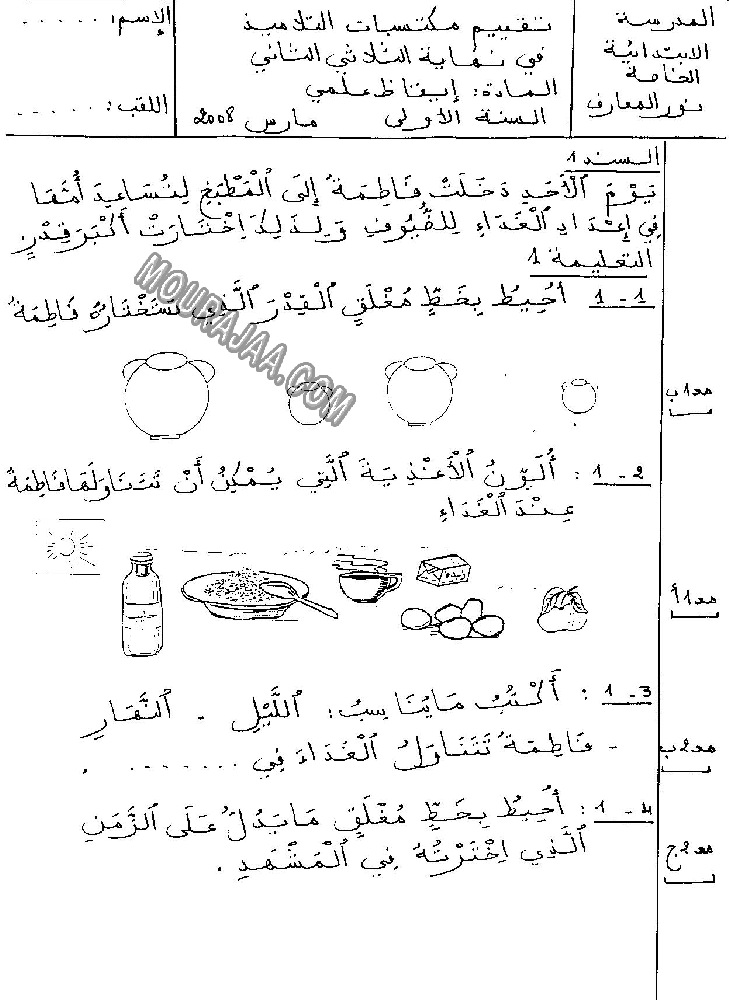 المدرسة
الابتدائية
الخاصة
نور المعارف
تقييم مكتسبات التلاميذ
في نهاية الثلاثي الثاني
المادة: إيقاظ علمي
السنة الأولى مارس 2008
الإسم: . . . . .
اللقب: . . . . .
السند 1
يَوْمَ الْأَحَدِ دَخَلَتْ فَاطِمَةُ إِلَى الْمَطْبَخِ لِتُسَاعِدَ أُمَّهَا
فِي إِعْدَادِ الْغَدَاءِ لِلضُّيُوفِ وَلِذَلِكَ اِخْتَارَتْ أَكْبَرَ قِدْرٍ
التعليمة 1
1 - 1 أُحِيطُ بِخَطٍّ مُغْلَقٍ الْقِدْرَ الَّذِي سَتَخْتَارُهُ فَاطِمَةُ
معـ1ب
1 - 2 : أُلَوِّنُ الْأَغْذِيَةَ الَّتِي يُمْكِنُ أَنْ تَتَنَاوَلَهَا فَاطِمَةُ
عِنْدَ الْغَدَاءِ
معـ1أ
1 - 3 : أَكْتُبُ مَا يُنَاسِبُ: اللَّيْلِ - النَّهَارِ
- فَاطِمَةُ تَتَنَاوَلُ الْغَدَاءَ فِي . . . . . . . .
معـ2ب
1 - 4 : أُحِيطُ بِخَطٍّ مُغْلَقٍ مَا يَدُلُّ عَلَى الزَّمَنِ
الَّذِي اِخْتَرْتُهُ فِي الْمَشْهَدِ .
معـ2ج
MOURAJAA.COM